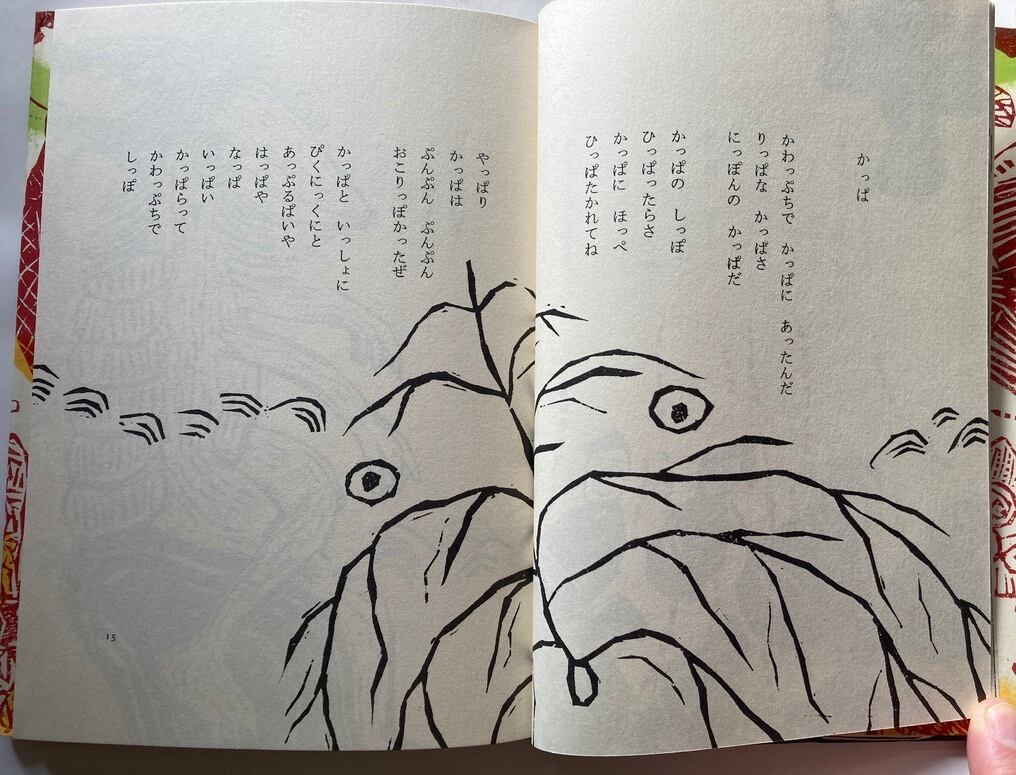 かっぱ
かわっぷちで　かっぱに　あったんだ
りっぱな　かっぱさ
にっぽんの　かっぱだ
かっぱの　しっぽ
ひっぱったらさ
かっぱに　ほっぺ
ひっぱたかれてね
やっぱり
かっぱは
ぷんぷん　ぷんぷん
おこりっぽかったぜ
かっぱと　いっしょに
ぴくにっくにと
あっぷるぱいや
はっぱや
なっぱ
いっぱい
かっぱらって
かわっぷちで
しっぽ
15